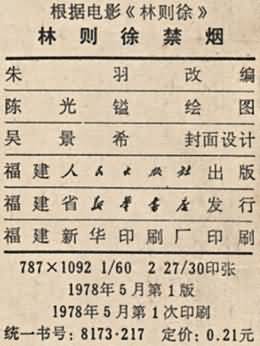 根据电影《林则徐》
林则徐禁烟
朱羽 改编
陈光镒 绘图
吴景希 封面设计
福建人民出版社 出版
福建省新华书店 发行
福建新华印刷厂 印刷
787×1092 1/60 2 27/30印张
1978年5月第1版
1978年5月第1次印刷
统一书号：8173·217 定价：0.21元